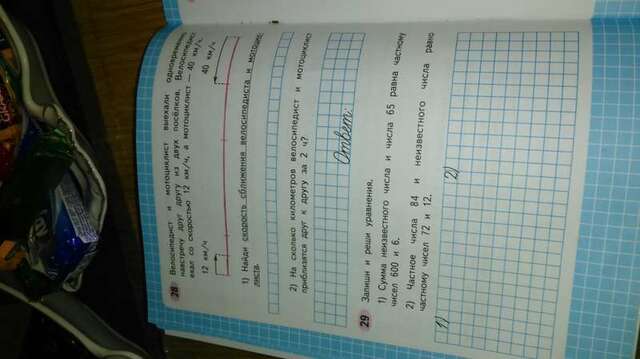 28 Велосипедист и мотоциклист выехали одновременно
навстречу друг другу из двух посёлков. Велосипедист
ехал со скоростью 12 км/ч, а мотоциклист — 40 км/ч.
12 км/ч 40 км/ч
1) Найди скорость сближения велосипедиста и мотоцик-
листа.
2) На сколько километров велосипедист и мотоциклист
приблизятся друг к другу за 2 ч?
Ответ:
29 Запиши и реши уравнения.
1) Сумма неизвестного числа и числа 65 равна частному
чисел 600 и 6.
2) Частное числа 84 и неизвестного числа равно
частному чисел 72 и 12.
1) 2)